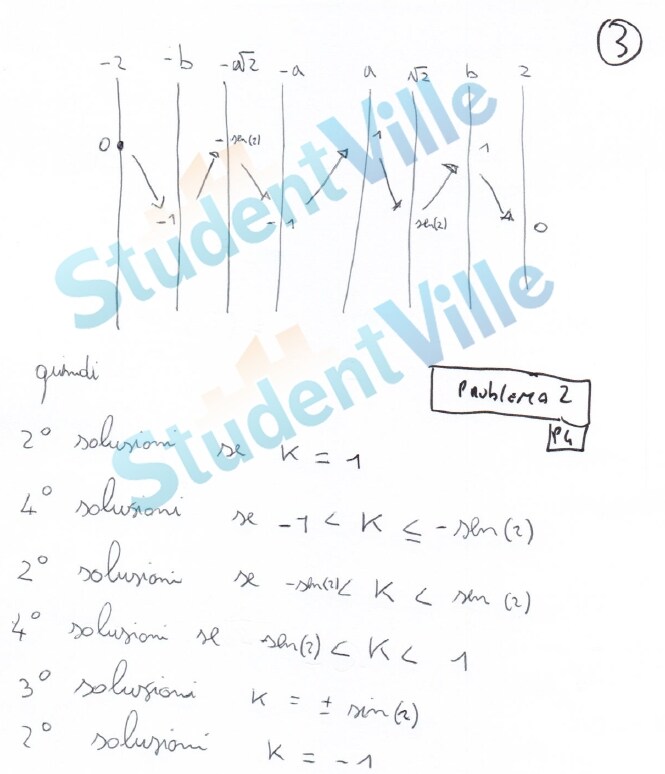 3
-2 -b -√2 -a a √2 b 2
0 - sen(2) 1 1
-1 -1 sen(2) 0
StudentVille
StudentVille
quindi
Problema 2
P4
2° soluzioni se K = 1
4° soluzioni se -1 < K ≤ -sen(2)
2° soluzioni se -sen(2) < K < sen (2)
4° soluzioni se sen(2) < K < 1
3° soluzioni K = ± sin(2)
2° soluzioni K = -1